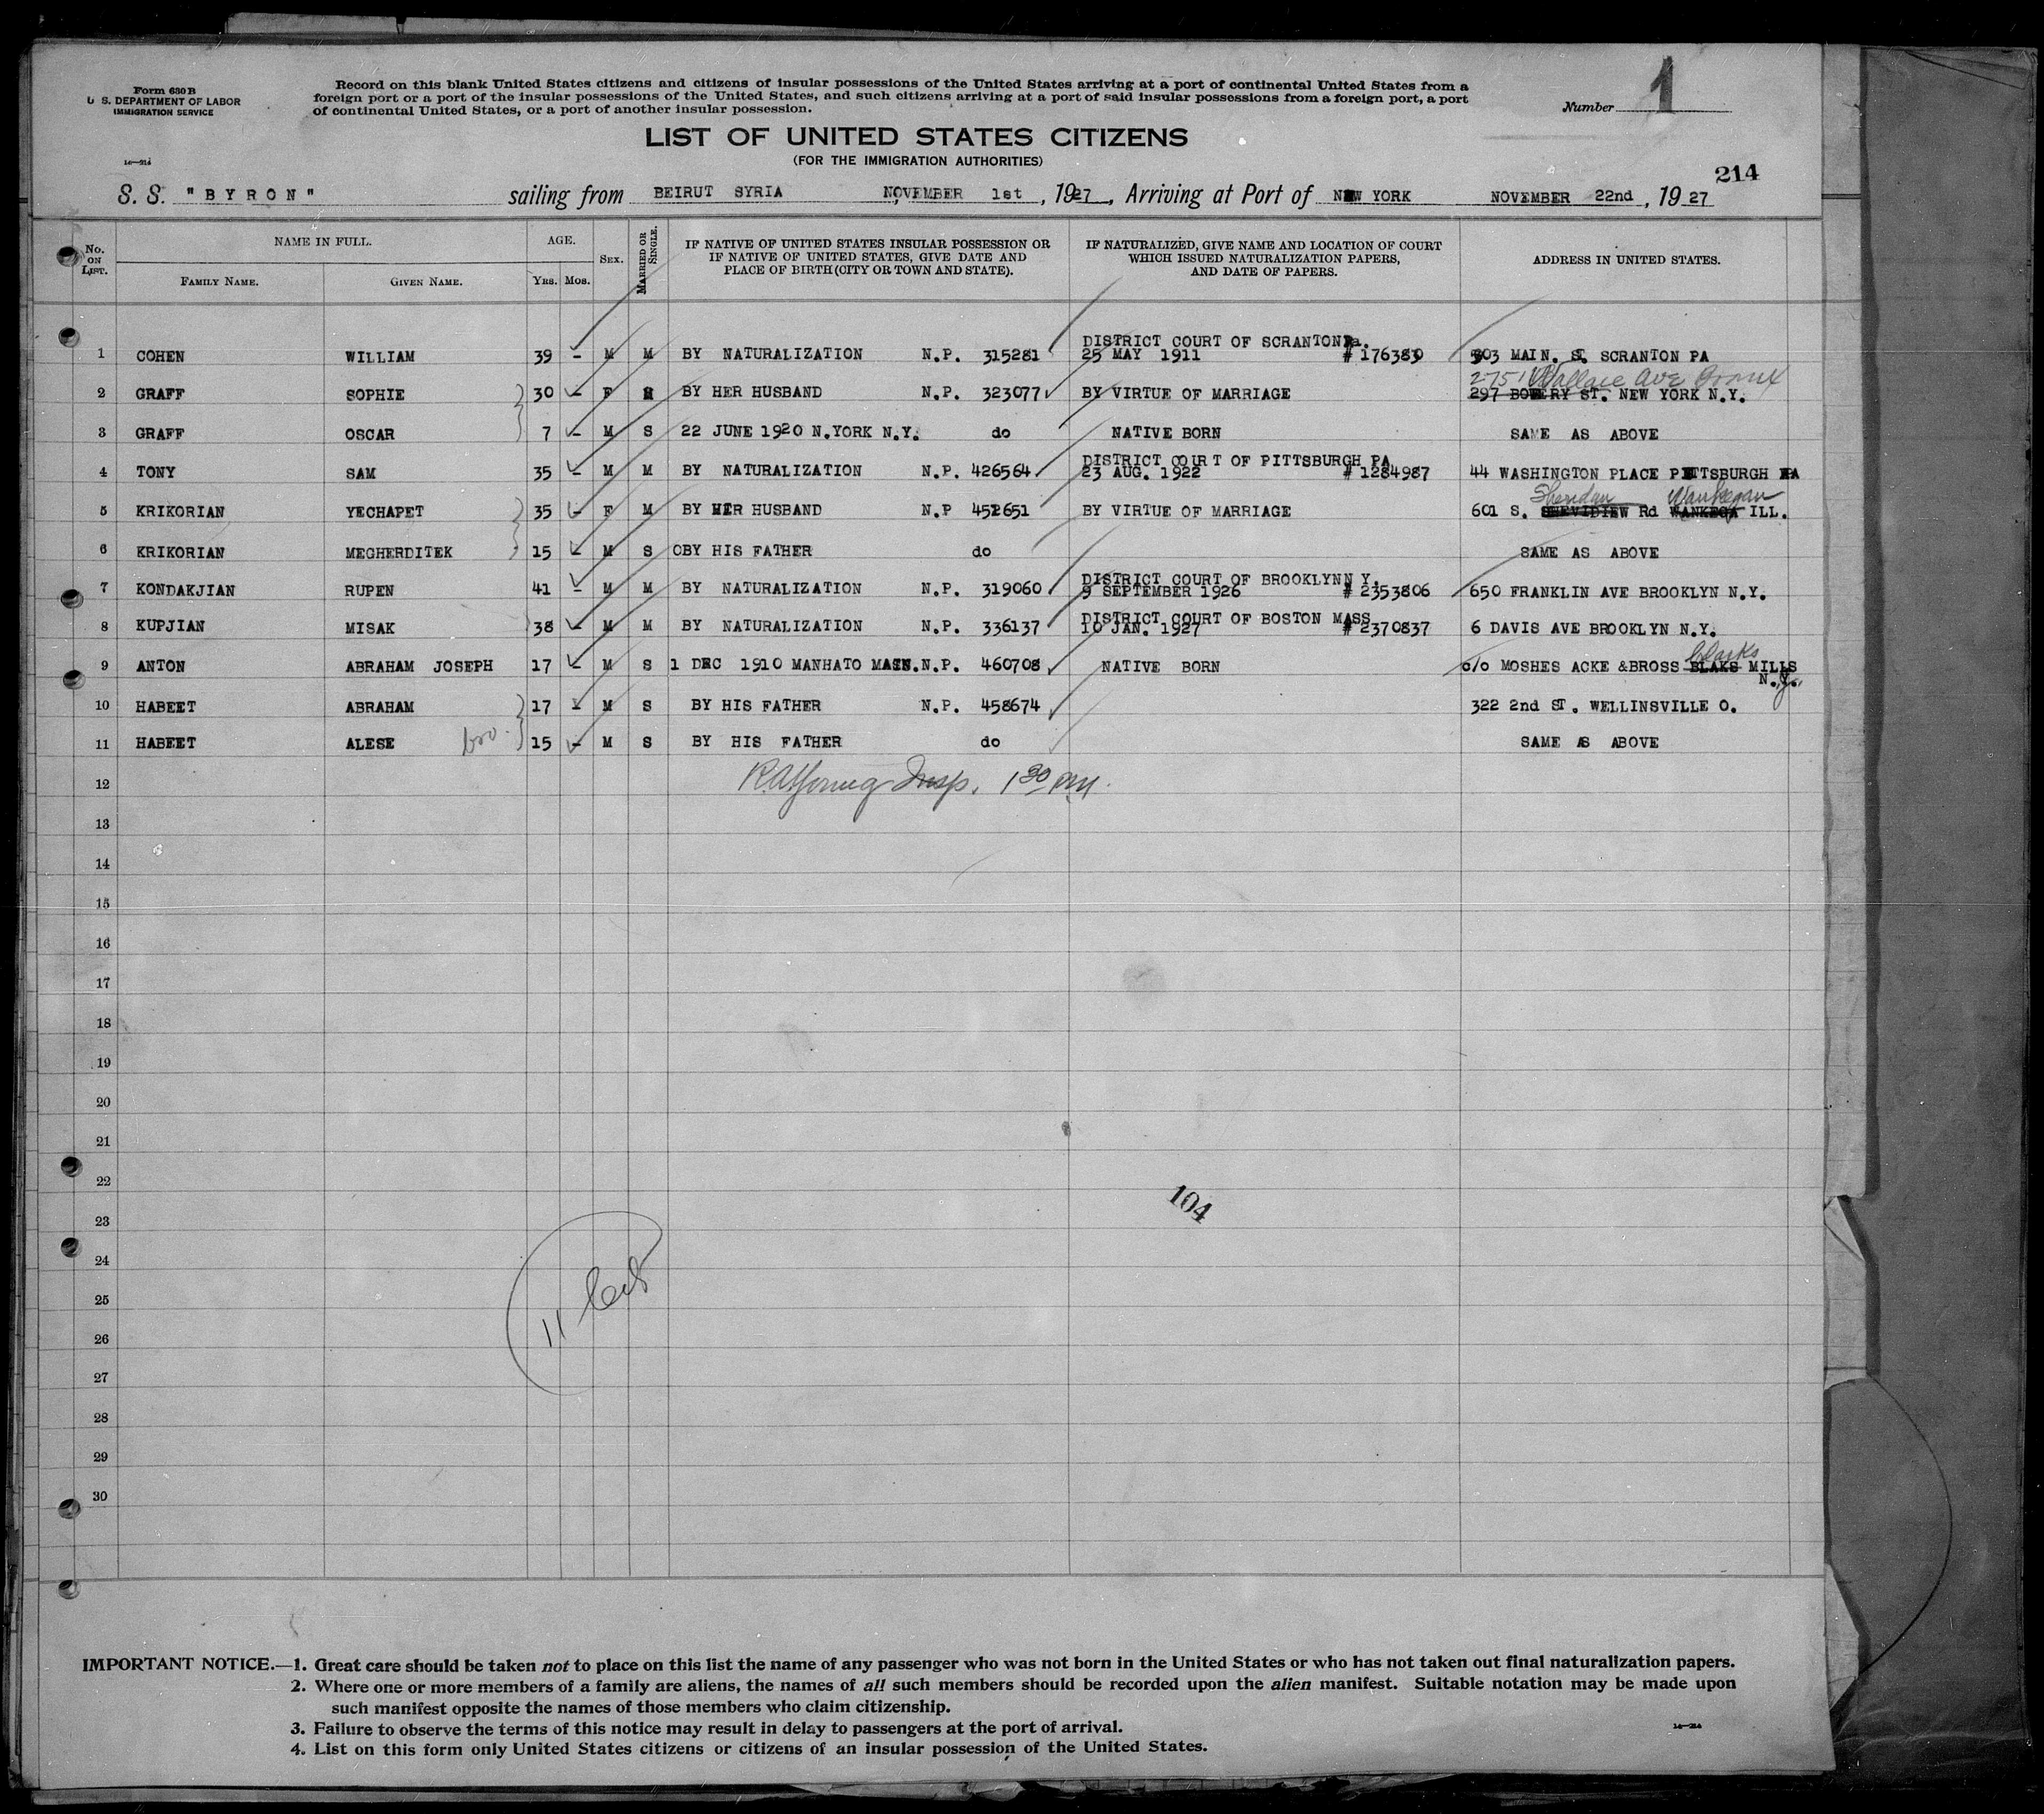 Form 630 B
U. S. DEPARTMENT OF LABOR
IMMIGRATION SERVICE
Record on this blank United States citizens and citizens of insular possessions of the United States arriving at a port of continental United States from a
foreign port or a port of the insular possessions of the United States, and such citizens arriving at a port of said insular possessions from a foreign port, a port
of continental United States, or a port of another insular possession.
Number 1
LIST OF UNITED STATES CITIZENS
(FOR THE IMMIGRATION AUTHORITIES)
214
S. S. "BYRON" sailing from BEIRUT SYRIA NOVEMBER 1st, 1927, Arriving at Port of NEW YORK NOVEMBER 22nd, 1927
No. ON LIST.
NAME IN FULL.
FAMILY NAME.
GIVEN NAME.
AGE.
YRS.
MOS.
SEX.
MARRIED OR SINGLE.
IF NATIVE OF UNITED STATES INSULAR POSSESSION OR
IF NATIVE OF UNITED STATES, GIVE DATE AND
PLACE OF BIRTH (CITY OR TOWN AND STATE).
IF NATURALIZED, GIVE NAME AND LOCATION OF COURT
WHICH ISSUED NATURALIZATION PAPERS,
AND DATE OF PAPERS.
ADDRESS IN UNITED STATES.
DISTRICT COURT OF SCRANTON Pa.
1 COHEN WILLIAM 39 - M M BY NATURALIZATION N.P. 315281 25 MAY 1911 # 176383 303 MAIN. ST. SCRANTON PA
2751 Wallace Ave Bronx
2 GRAFF SOPHIE 30 - F M BY HER HUSBAND N.P. 323077 BY VIRTUE OF MARRIAGE 297 BOWERY ST. NEW YORK N.Y.
3 GRAFF OSCAR 7 - M S 22 JUNE 1920 N.YORK N.Y. do NATIVE BORN SAME AS ABOVE
DISTRICT COURT OF PITTSBURGH PA
4 TONY SAM 35 - M M BY NATURALIZATION N.P. 426564 23 AUG. 1922 # 1284987 44 WASHINGTON PLACE PITTSBURGH PA
Sheridan Waukegan
5 KRIKORIAN YECHAPET 35 - F M BY HER HUSBAND N.P 452651 BY VIRTUE OF MARRIAGE 601 S. SHEVIDIEW Rd WANKEGA ILL.
6 KRIKORIAN MEGHERDITEK 15 - M S CBY HIS FATHER do SAME AS ABOVE
DISTRICT COURT OF BROOKLYNN Y.
7 KONDAKJIAN RUPEN 41 - M M BY NATURALIZATION N.P. 319060 9 SEPTEMBER 1926 # 2353806 650 FRANKLIN AVE BROOKLYN N.Y.
DISTRICT COURT OF BOSTON MASS
8 KUPJIAN MISAK 38 - M M BY NATURALIZATION N.P. 336137 10 JAN. 1927 # 2370837 6 DAVIS AVE BROOKLYN N.Y.
Clarks
9 ANTON ABRAHAM JOSEPH 17 - M S 1 DEC 1910 MANHATO MASN. N.P. 460708 NATIVE BORN c/o MOSHES ACKE &BROSS BLAKS MILLS
N.Y.
10 HABEET ABRAHAM 17 - M S BY HIS FATHER N.P. 458674 322 2nd ST. WELLINSVILLE O.
11 HABEET ALESE bro. 15 - M S BY HIS FATHER do SAME AS ABOVE
12 Insp. 1 30 PM.
13
14
15
16
17
18
19
20
21
22
104
23
24
25
11
26
27
28
29
30
IMPORTANT NOTICE.—1. Great care should be taken not to place on this list the name of any passenger who was not born in the United States or who has not taken out final naturalization papers.
2. Where one or more members of a family are aliens, the names of all such members should be recorded upon the alien manifest. Suitable notation may be made upon
such manifest opposite the names of those members who claim citizenship.
3. Failure to observe the terms of this notice may result in delay to passengers at the port of arrival.
4. List on this form only United States citizens or citizens of an insular possession of the United States.